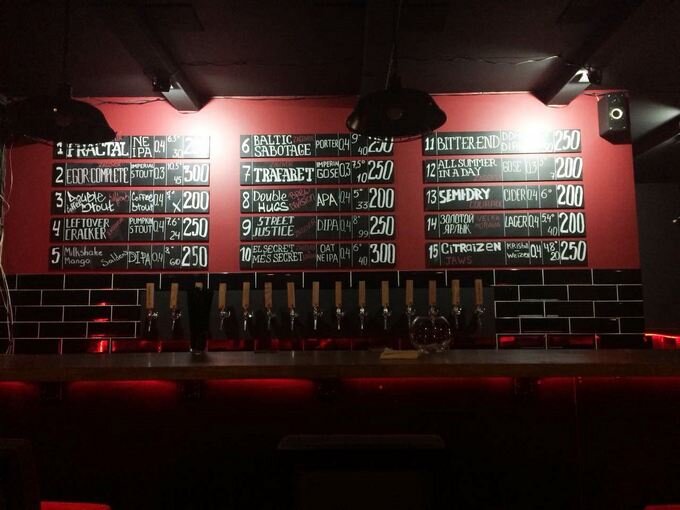 1 FRACTAL NE IPA 0,4 6.5° 30 250
2 EGOR COMPLETE IMPERIAL STOUT 0,4 10.5° 45 300
3 Double Coffee Stout Coffee Stout 0,4 X 200
4 LEFTOVER CRACKER PUMPKIN STOUT 0,4 7.6° 24 250
5 Milkshake Mango DIPA 0,4 8° 60 250
6 BALTIC SABOTAGE PORTER 0,4 9° 40 250
7 TRAFARET IMPERIAL GOSE 0,3 7.5° 10 250
8 Double HUGS APA 0,4 5° 33 200
9 STREET JUSTICE DIPA 0,4 8° 99 250
10 EL SECRET MES SECRET OAT NE IPA 0,4 6° 40 300
11 BITTER END 250
12 ALL SUMMER IN A DAY GOSE 0,3 7 200
13 SEMI-DRY CIDER 0,4 200
14 ЗОЛОТОЙ ЯРЛЫК VELKA MORAVA LAGER 0,4 40 200
15 CITRAIZEN JAWS Kristal Weizen 0,4 4.8° 20 250